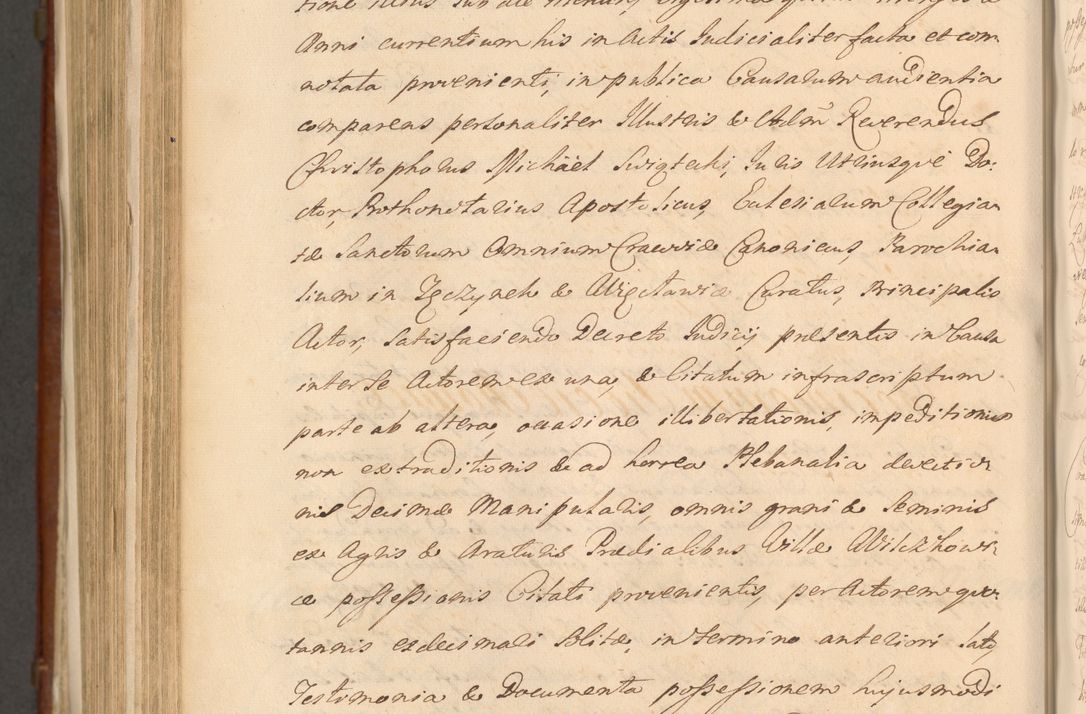 Anni currentium his in Actis Iudicialiter facta et con
notata provenienti, in publica Causarum audientia
comparens personaliter Illustris & Adm Reverendus
Christophorus Michäel Swiątecki, Iuris Utriusque Do:
ctor, Prothonotarius Apostolicus, Ecclesiarum Collegia
tæ Sanctorum Omnium Cracoviæ Canonicus, Parochia
lium in Tęczynek & Więcławicæ Curatus, Principalis
Actor, satisfaciendo Decreto Iudicij præsentis in Causa
inter se Actorem ex una, & Citatum infrascriptum
parte ab altera, occasione illibertationis, impeditionis
non extraditionis & ad horrea Plebanalia devectio
nis Decimæ Manipularis, omnis grani & seminis
ex Agris & Araturis Prædialibus Villæ Wilczkowi
ce possessionis Citati provenientis, per Actorem quo
tannis exdecimari solitæ, in termino anteriori lato,
Testimonia & Documenta possessionem hujusmodi